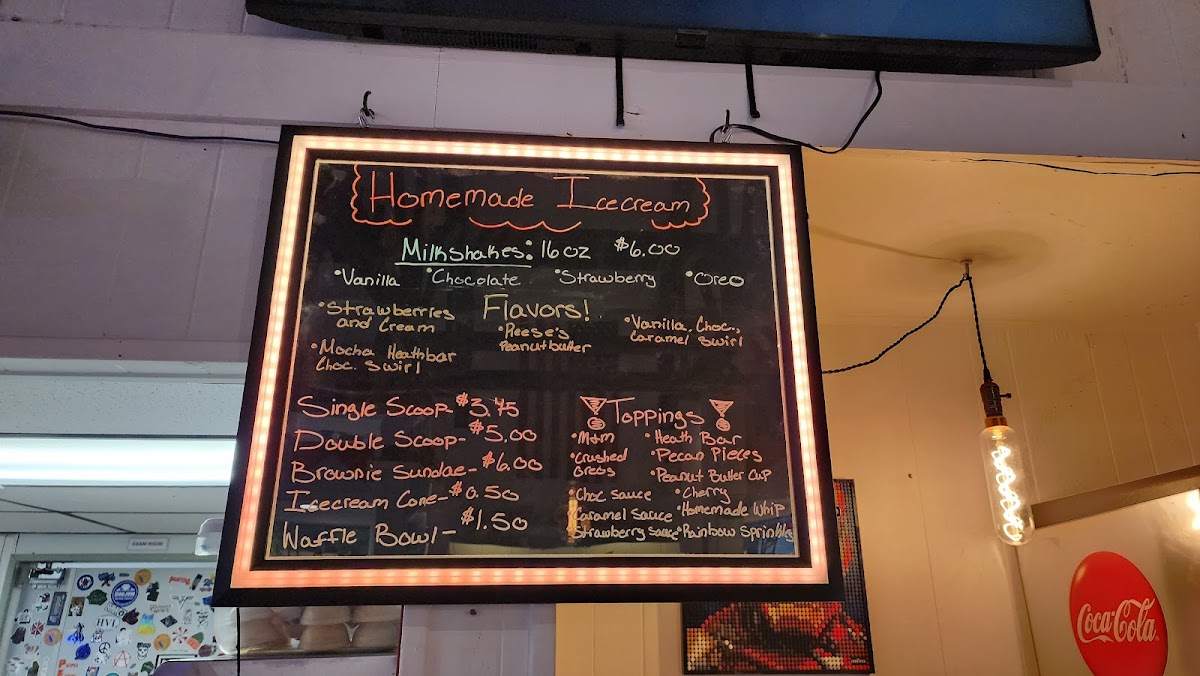 Homemade Icecream
Milkshakes: 16oz $6.00
•Vanilla •Chocolate •Strawberry •Oreo
Flavors!
•Strawberries
and Cream
•Reese's
Peanutbutter
•Vanilla, Choc.,
Caramel Swirl
•Mocha Heathbar
Choc. Swirl
Single Scoop-$3.75
Double Scoop-$5.00
Brownie Sundae-$6.00
Icecream Cone-$0.50
Waffle Bowl-$1.50
Toppings
•M&m •Heath Bar
•Crushed
Oreos
•Pecan Pieces
•Peanut Butter Cup
•Choc Sauce •Cherry
•Caramel Sauce •Homemade Whip
•Strawberry Sauce •Rainbow Sprinkles
EXAM ROOM
Coca-Cola